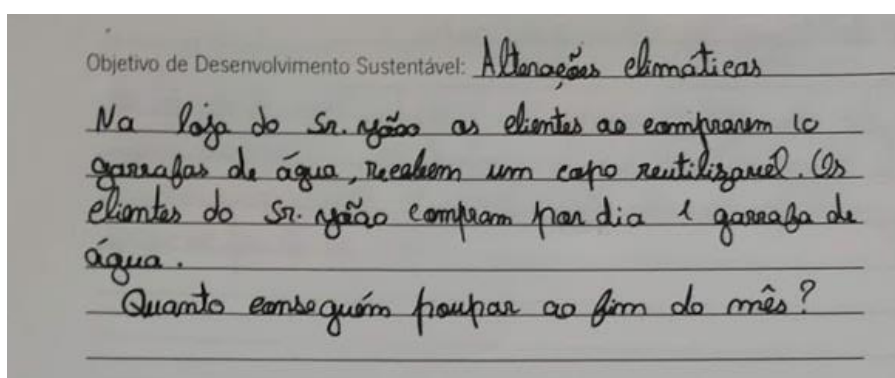 Objetivo de Desenvolvimento Sustentável: Alterações climáticas
Na loja do Sr. João os clientes ao comprarem 10
garrafas de água, recebem um copo reutilizavél. Os
clientes do Sr. João compram por dia 1 garrafa de
água.
Quanto conseguém poupar ao fim do mês?